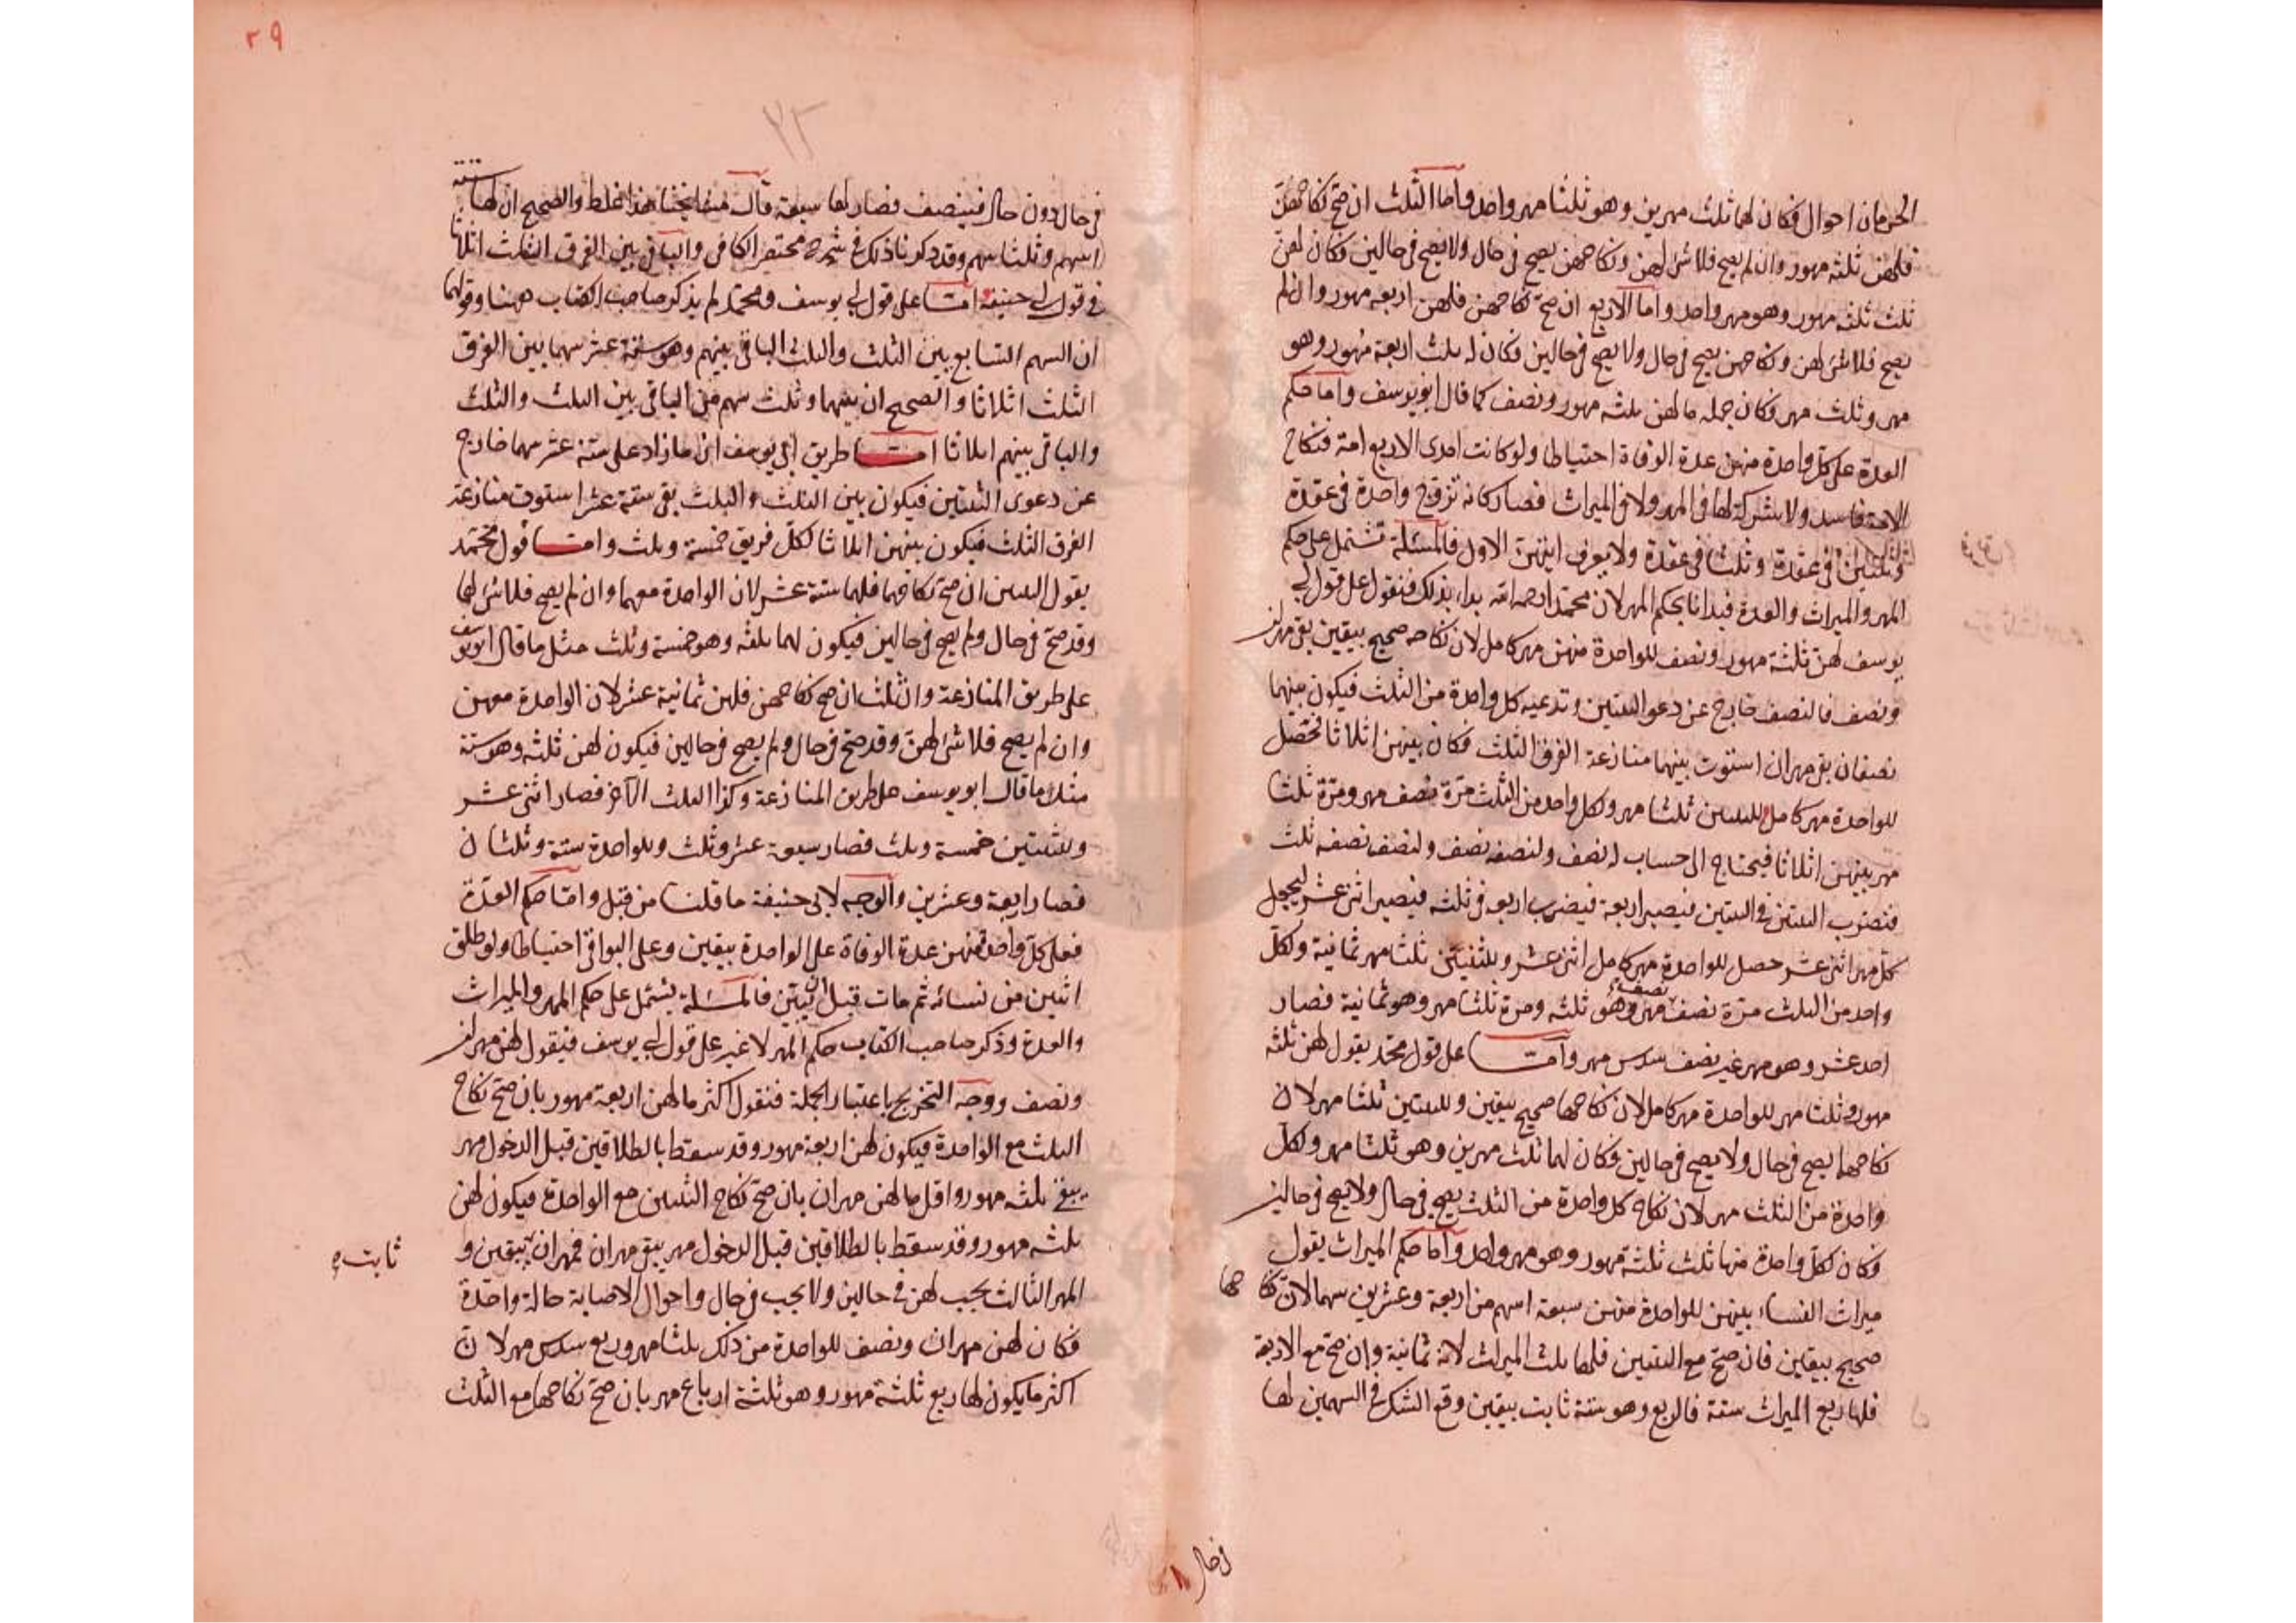 الحرمان احوال فكان لهما ثلث مهرين وهو ثلثا مهر واحد واما الثلث ان صح نكاحهن
فلهن ثلثه مهور وان لم يصح فلا شئ لهن ونكاحهن يصح فى حال ولا يصح فى حالين فكان لهن
ثلث ثلثه مهور وهو مهر واحد واما الاربع ان صح نكاحهن فلهن اربعه مهور وان لم
يصح فلا شئ لهن ونكاحهن يصح فى حال ولا يصح فى حالين فكان له ثلث اربعة مهور وهو
مهر وثلث مهر فكان جمله ما لهن ثلثه مهور ونصف كما قال ابو يوسف واما حكم
العدة على كل واحدة منهن عدة الوفاة احتياطا ولو كانت احدى الاربع امة فنكاح
الامة فاسد ولا شركة لها فى المهر ولا فى الميراث فصار كانه تزوج واحدة فى عقدة
وثنتين فى عقدة وثلثا فى عقدة ولا يعرف ايتهن الاول فالمسئلة تشتمل على حكم
المهر والميراث والعدة فبدانا بحكم المهر لان محمدا رحمه الله بدا بذلك فنقول على قول ابى
يوسف لهن ثلثة مهور ونصف للواحدة منهن مهر كامل لان نكاحه صحيح بيقين بقى مهران
ونصف فالنصف خارج عن دعوا الثنتين وتدعيه كل واحدة من الثلث فيكون بينهما
نصفان بقى مهران استوت بينهما منازعة الفرق الثلث فكان بينهن اثلاثا فحصل
للواحدة مهر كامل وللثنتين ثلثا مهر ولكل واحد من الثلث مرة نصف مهر ومرة ثلثا
مهر بينهن اثلاثا فيحتاج الى حساب له نصف ولنصفه نصف ولنصف نصفه ثلث
فنضرب الثنتين فى الثنتين فيصير اربعة فيضرب اربعه فى ثلثه فيصير اثنى عشر ليجعل
كل مهر اثنى عشر حصل للواحدة مهر كامل اثنى عشر وللثنتين ثلثا مهر ثمانية ولكل
واحد من الثلث مرة نصف مهر نصفه وهو ثلثه ومرة ثلثا مهر وهو ثمانية فصار
احد عشر وهو مهر غير نصف سدس مهر واما على قول محمد يقول لهن ثلثة
مهور وثلثا مهر للواحدة مهر كامل لان نكاحها صحيح بيقين وللثنتين ثلثا مهر لان
نكاحهما يصح فى حال ولا يصح فى حالين فكان لهما ثلث مهرين وهو ثلثا مهر ولكل
واحدة من الثلث مهر لان نكاح كل واحدة من الثلث يصح فى حال ولا يصح فى حالين
فكان لكل واحدة منها ثلث ثلثة مهور وهو مهر واحد واما حكم الميراث يقول
ميراث النساء بينهن للواحدة منهن سبعة اسهم من اربعة وعشرين سهما لان نكاحها
صحيح بيقين فان صح مع الثنتين فلها ثلث الميراث لانه ثمانية وان صح مع الاربعة
فلها ربع الميراث ستة فالربع وهو ستة ثابت بيقين وقع الشك فى السهمين لها
فى حال
٢٩
٢٣
فى حال دون حال فينصف فصار لها سبعة قال مشايخنا هذا غلط والصحيح ان لها ستة
اسهم وثلثا سهم وقد ذكرنا ذلك فى شرح مختصر الكافى والباقى بين الفرق الثلث اثلاثا
فى قول ابى حنيفه اما على قول ابى يوسف ومحمد لم يذكر صاحب الكتاب ههنا وقولهما
ان السهم السابع بين الثلث والثلث الباقى بينهم وهو ستة عشر سهما بين الفرق
الثلث اثلاثا والصحيح ان بينهما وثلث سهم من الباقى بين الثلث والثلث
والباقى بينهم اثلاثا اما طريق ابى يوسف ان ما زاد على ستة عشر سهما خارج
عن دعوى الثنتين فيكون بين الثلث والثلث بقى ستة عشر استوت منازعة
الفرق الثلث فيكون بينهن اثلاثا لكل فريق خمسة وثلث واما قول محمد
يقول الثنتين ان صح نكاحهما فلهما ستة عشر لان الواحدة معهما وان لم يصح فلا شئ لهما
وقد صح فى حال ولم يصح فى حالين فيكون لهما ثلثه وهو خمسة وثلث مثل ما قال ابو يوسف
على طريق المنازعة والثلث ان صح نكاحهن فلهن ثمانية عشر لان الواحدة معهن
وان لم يصح فلا شئ لهن وقد صح فى حال ولم يصح فى حالين فيكون لهن ثلثه وهو ستة
مثل ما قال ابو يوسف على طريق المنازعة وكذا الثلث الآخر فصار اثنى عشر
وللثنتين خمسة وثلث فصار سبعة عشر وثلث وللواحدة ستة وثلثان
فصار اربعة وعشرين والوجه لابى حنيفة ما قلنا من قبل واما حكم العدة
فعلى كل واحدة منهن عدة الوفاة على الواحدة بيقين وعلى البواقى احتياطا ولو طلق
اثنين من نسائه ثم مات قبل ان يبين فالمسئلة يشتمل على حكم المهر والميراث
والعدة وذكر صاحب الكتاب حكم المهر لا غير على قول ابى يوسف فنقول لهن مهران
ونصف ووجه التخريج باعتبار الجملة فنقول اكثر ما لهن اربعة مهور بان صح نكاح
الثلث مع الواحدة فيكون لهن اربعة مهور وقد سقط بالطلاقين قبل الدخول مهر
يبقى ثلثه مهور واقل ما لهن مهران بان صح نكاح الثنتين مع الواحدة فيكون لهن
ثلثه مهور وقد سقط بالطلاقين قبل الدخول مهر يبقى مهران فمهران بيقين و
ثابت
المهر الثالث يجب لهن فى حالين ولا يجب فى حال واحوال الاصابة حالة واحدة
فكان لهن مهران ونصف للواحدة من ذلك ثلثا مهر وربع سدس مهر لان
اكثر ما يكون لها ربع ثلثة مهور وهو ثلثة ارباع مهر بان صح نكاحها مع الثلث